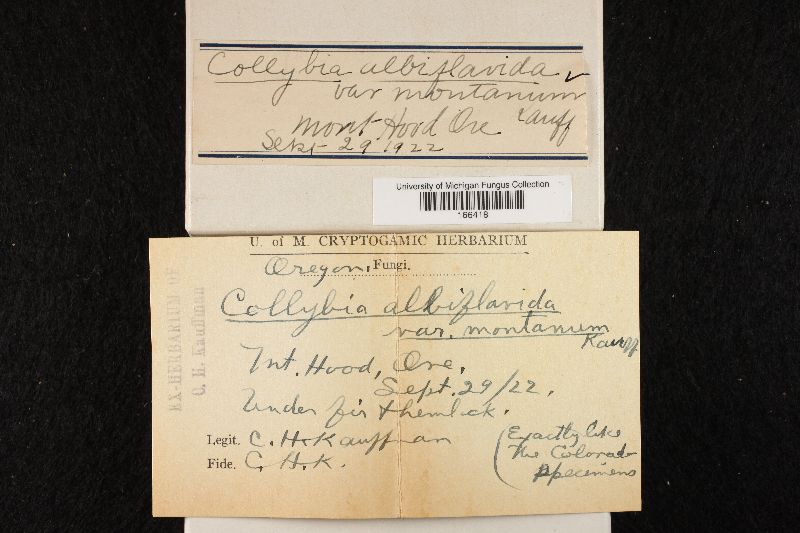 Collybia albiflavida ✓
var montanum
Kauff
Mont Hood Ore
Sept 29 1922
University of Michigan Fungus Collection
166418
U. of M. CRYPTOGAMIC HERBARIUM
Oregon, Fungi.
Collybia albiflavida
var. montanum
Kauff
Mt. Hood, Ore.
Sept. 29/22.
Under fir & hemlock.
Legit. C. H. Kauffman
Fide. C. H. K.
(Exactly like
the Colorado
specimens
EX-HERBARIUM OF
C. H. Kauffman